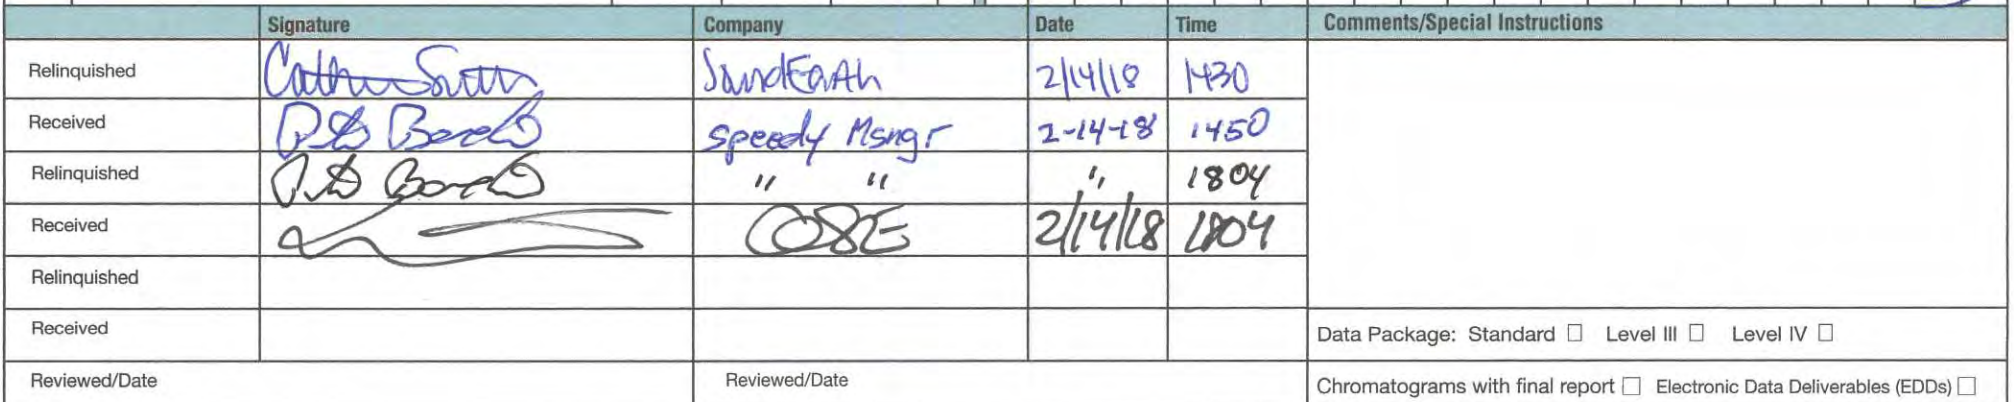 Signature Company Date Time Comments/Special Instructions
Relinquished 2/14/18 1430
Received Speedy Msngr 2-14-18 1450
Relinquished " " " 1804
Received OSE 2/14/18 1804
Relinquished
Received
Data Package: Standard ☐ Level III ☐ Level IV ☐
Reviewed/Date Reviewed/Date
Chromatograms with final report ☐ Electronic Data Deliverables (EDDs) ☐